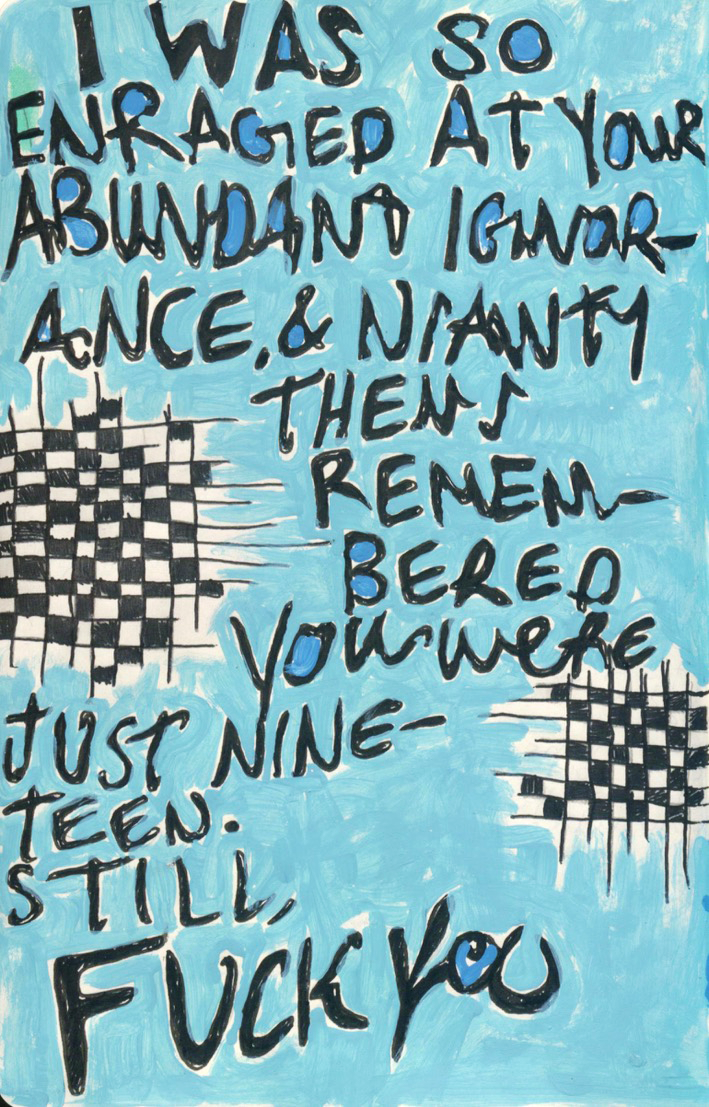 I WAS SO
ENRAGED AT YOUR
ABUNDANT IGNOR-
ANCE, & NIAWTY
THEN I
REMEM-
BERED
you weRE
JUST NINE-
TEEN.
STILL,
FUCK YOU